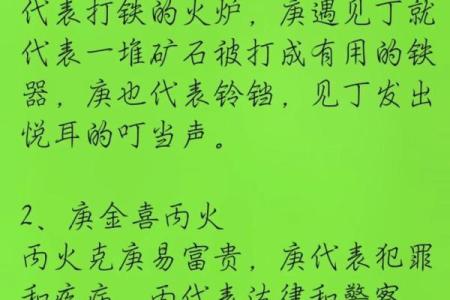 代表打铁的火炉，庚遇见丁就
代表一堆矿石被打成有用的铁
器，庚也代表铃铛，见丁发出
悦耳的叮当声。
2、庚金喜丙火
丙火克庚易富贵，庚代表犯罪
和疾病，丙代表法律和警察